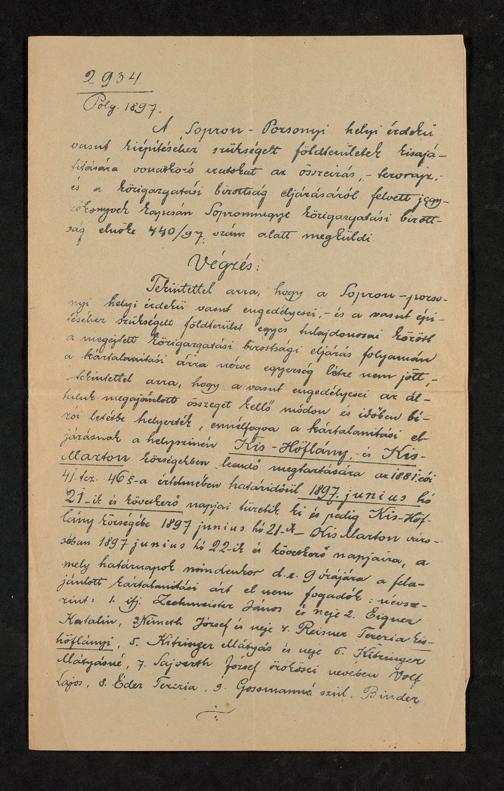 2934
Polg. 1897.
A Sopron-Pozsonyi helyi érdekű
vasut kiépitéséhez szükségelt földterületek kisajá-
titására vonatkozó iratokat az összeirás,- tervrajz,-
és a közigazgatási bizottság eljárásáról felvett jegy-
zőkönyvek kapcsán Sopronmegye közigazgatási bizott-
ság elnöke 440/97. szám alatt megküldi.
Végzés:
Tekintettel arra, hogy a Sopron-pozso-
nyi helyi érdekű vasut engedélyesei,- és a vasut épi-
téséhez szükségelt földterület egyes tulajdonosai között
a megejtett közigazgatási bizottsági eljárás folyamán
a kártalanitási árra nézve egyezség létre nem jött,-
tekintettel arra, hogy a vasut engedélyesei az ál-
taluk megajánlott összeget kellő módon és időben bi-
rói letétbe helyezték, ennélfogva a kártalanitási el-
járásnak a helyszinén Kis-Höflány,- és Kis-
Marton községekben leendő megtartására az 1881. évi
41. tcz. 46 §-a értelmében határidőül 1897 junius hó
21-ik és következő napjai tüzetik ki és pedig Kis-Höf-
lány községbe 1897 junius hó 21-ik – Kis Marton váro-
sában 1897 junius hó 22-ik és következő napjaira, a
mely határnapok mindenkor d.e. 9 órájára a fela-
jánlott kártalanitási árt el nem fogadók: névsze-
rint: 1. ifj. Zechmeister János és neje 2. Eigner
Katalin, 3 Németh József és neje 4. Reisner Terézia kis-
höflányi, 5. Kitzinger Mátyás és neje 6. Kitzinger
Mátyásné, 7. József örökösei nevében Wolf
Lajos, 8. Eder Terézia, 9. Gossmanné szül. Binder